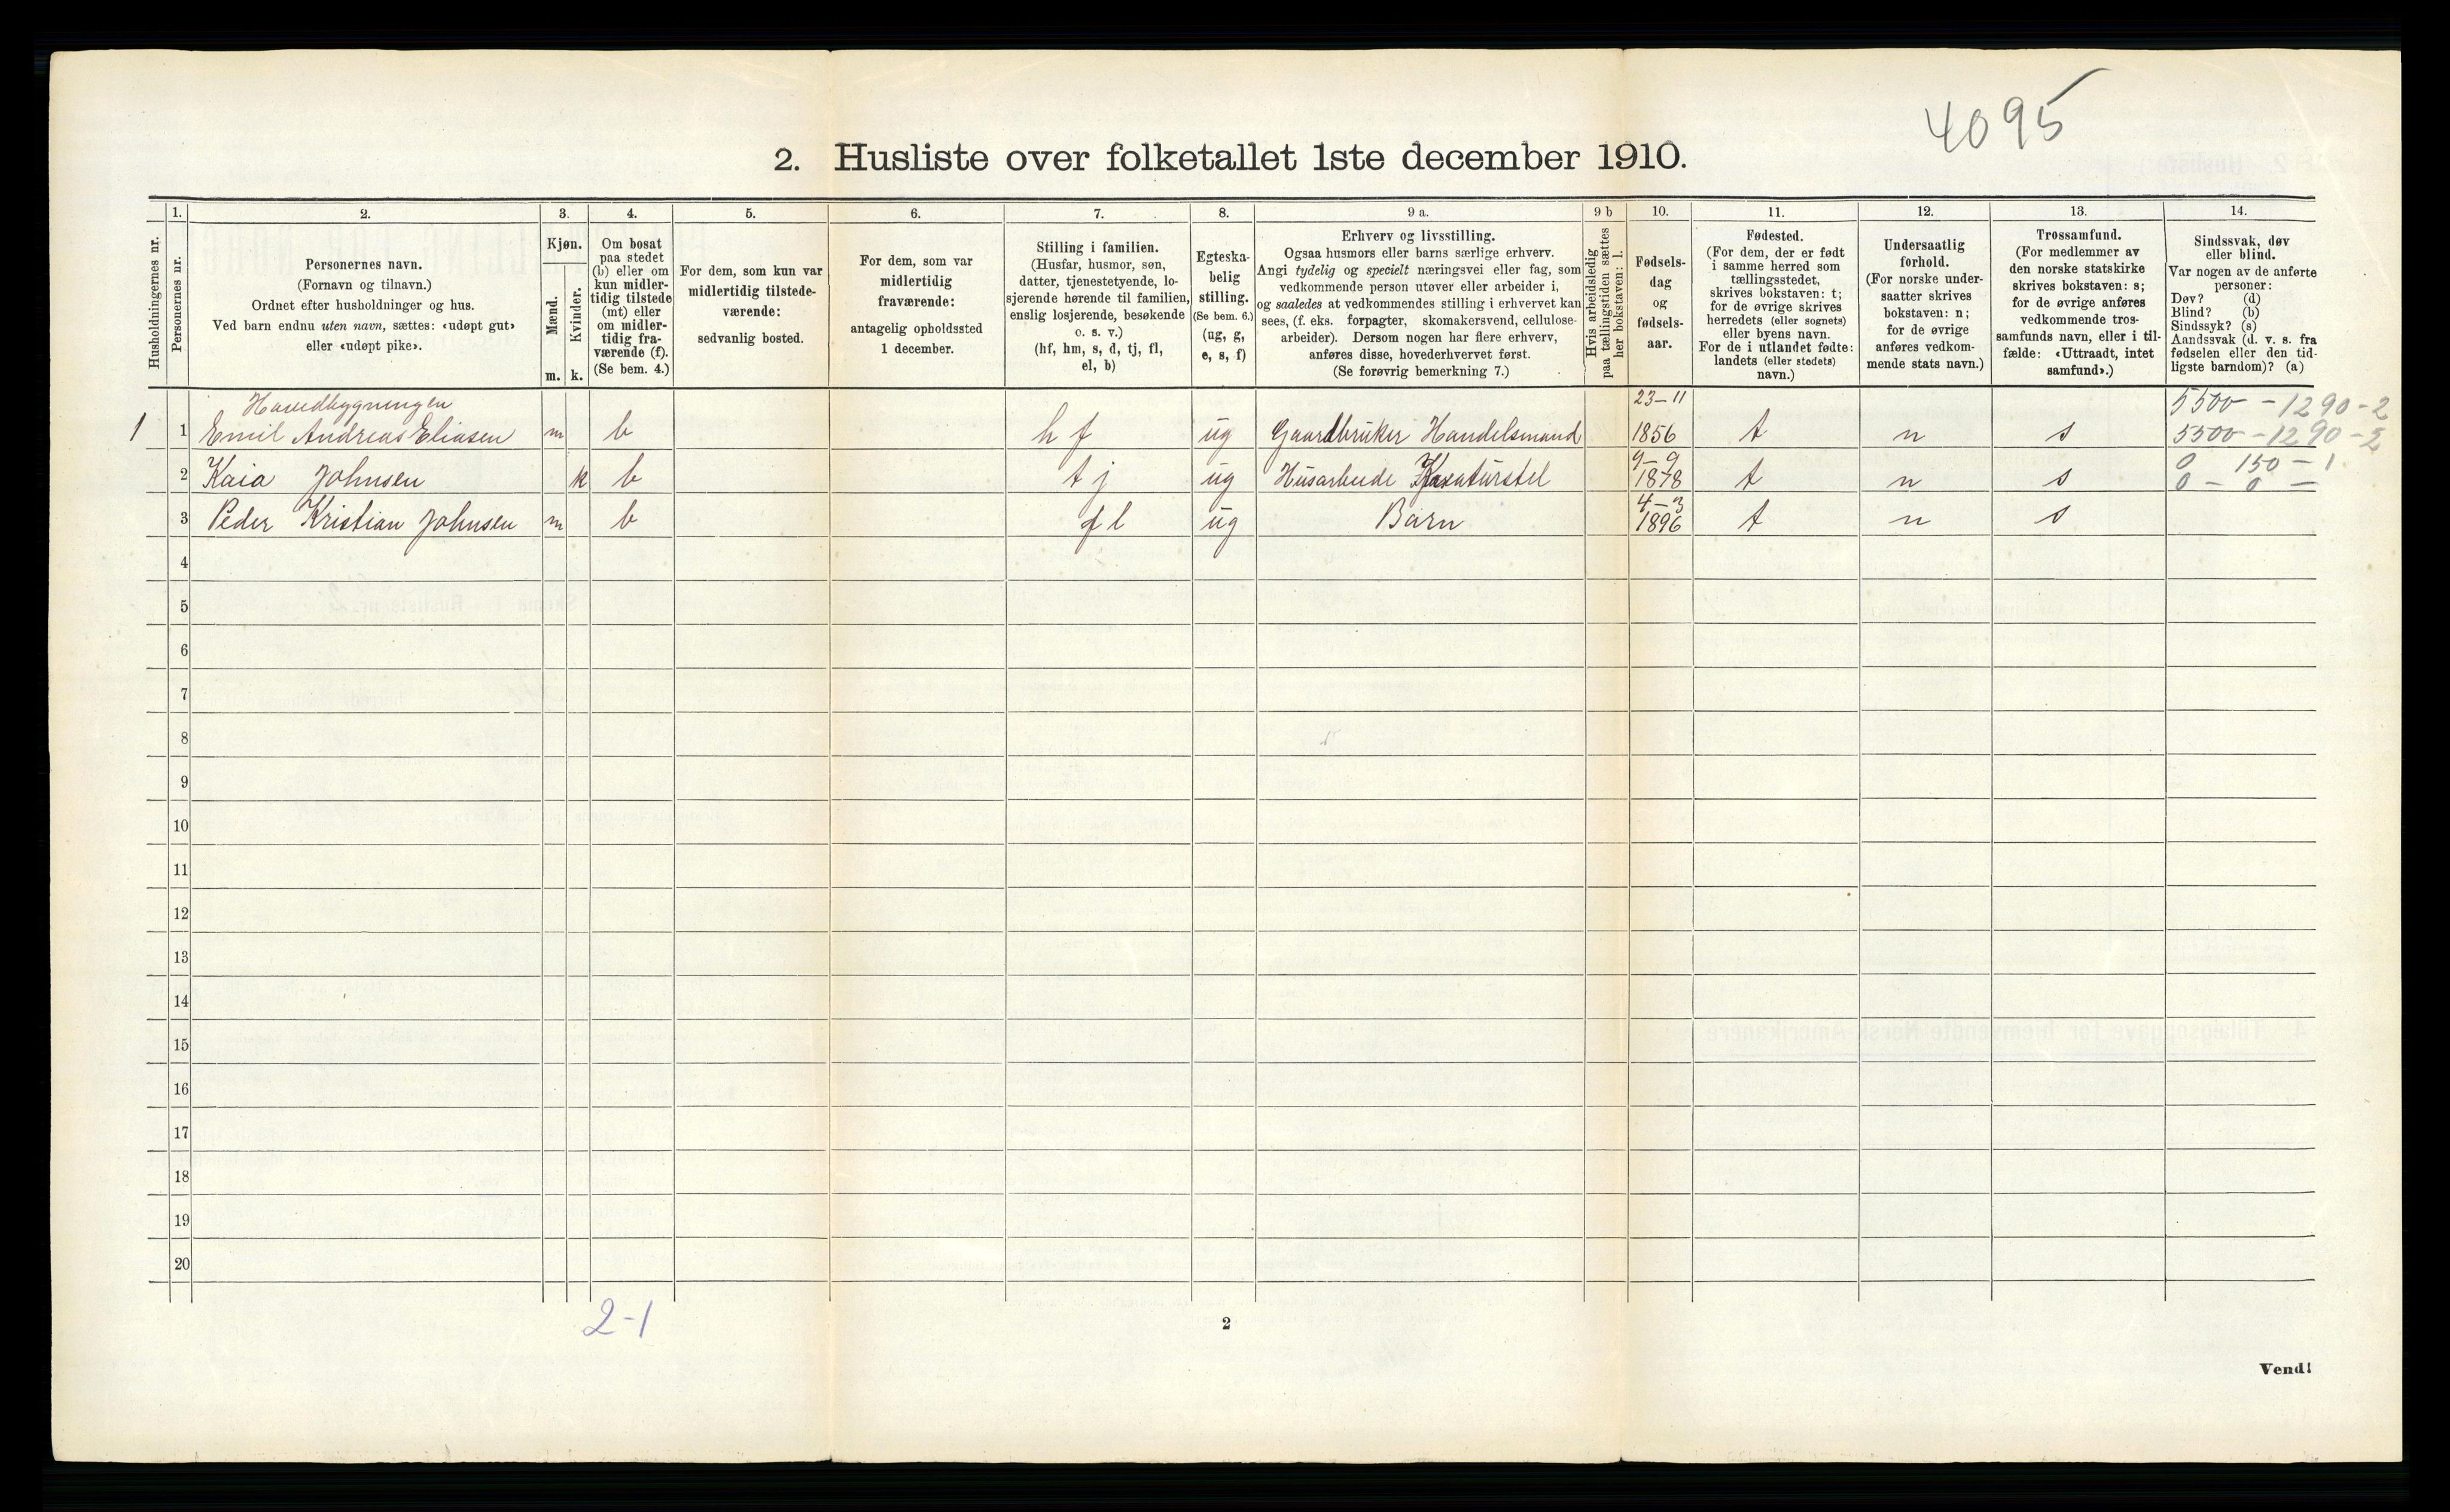 4095
2. Husliste over folketallet 1ste december 1910.
Husholdningernes nr.
1.
Personernes nr.
2.
Personernes navn.
(Fornavn og tilnavn.)
Ordnet efter husholdninger og hus.
Ved barn endnu uten navn, sættes: «udøpt gut»
eller «udøpt pike».
3.
Kjøn.
Mænd.
Kvinder.
m. k.
4.
Om bosat
paa stedet
(b) eller om
kun midler-
tidig tilstede
(mt) eller
om midler-
tidig fra-
værende (f).
(Se bem. 4.)
5.
For dem, som kun var
midlertidig tilstede-
værende:
sedvanlig bosted.
6.
For dem, som var
midlertidig
fraværende:
antagelig opholdssted
1 december.
7.
Stilling i familien.
(Husfar, husmor, søn,
datter, tjenestetyende, lo-
sjerende hørende til familien,
enslig losjerende, besøkende
o. s. v.)
(hf, hm, s, d, tj, fl,
el, b)
8.
Egteska-
belig
stilling.
(Se bem. 6.)
(ug, g,
e, s, f)
9 a.
Erhverv og livsstilling.
Ogsaa husmors eller barns særlige erhverv.
Angi tydelig og specielt næringsvei eller fag, som
vedkommende person utøver eller arbeider i,
og saaledes at vedkommendes stilling i erhvervet kan
sees, (f. eks. forpagter, skomakersvend, cellulose-
arbeider). Dersom nogen har flere erhverv,
anføres disse, hovederhvervet først.
(Se forøvrig bemerkning 7.)
9 b
Hvis arbeidsledig
paa tællingstiden sættes
her bokstaven: l.
10.
Fødsels-
dag
og
fødsels-
aar.
11.
Fødested.
(For dem, der er født
i samme herred som
tællingsstedet,
skrives bokstaven: t;
for de øvrige skrives
herredets (eller sognets)
eller byens navn.
For de i utlandet fødte:
landets (eller stedets)
navn.)
12.
Undersaatlig
forhold.
(For norske under-
saatter skrives
bokstaven: n;
for de øvrige
anføres vedkom-
mende stats navn.)
13.
Trossamfund.
(For medlemmer av
den norske statskirke
skrives bokstaven: s;
for de øvrige anføres
vedkommende tros-
samfunds navn, eller i til-
fælde: «Uttraadt, intet
samfund».)
14.
Sindssvak, døv
eller blind.
Var nogen av de anførte
personer:
Døv? (d)
Blind? (b)
Sindssyk? (s)
Aandssvak (d. v. s. fra
fødselen eller den tid-
ligste barndom)? (a)
Hovedbygningen 23-11 5500 - 1290 - 2
1 1 Emil Andreas Eliasen m b hf ug Gaardbruker Handelsmand 1856 t n s 5500 - 1290 - 2
9-9 0 150 - 1
2 Kaia Johnsen k b tj ug Husarbeide 1878 t n s 0 - 0 -
4-3
3 Peder Kristian Johnsen m b fl ug Barn 1896 t n s
4
5
6
7
8
9
10
11
12
13
14
15
16
17
18
19
20
2-1
2
Vend!